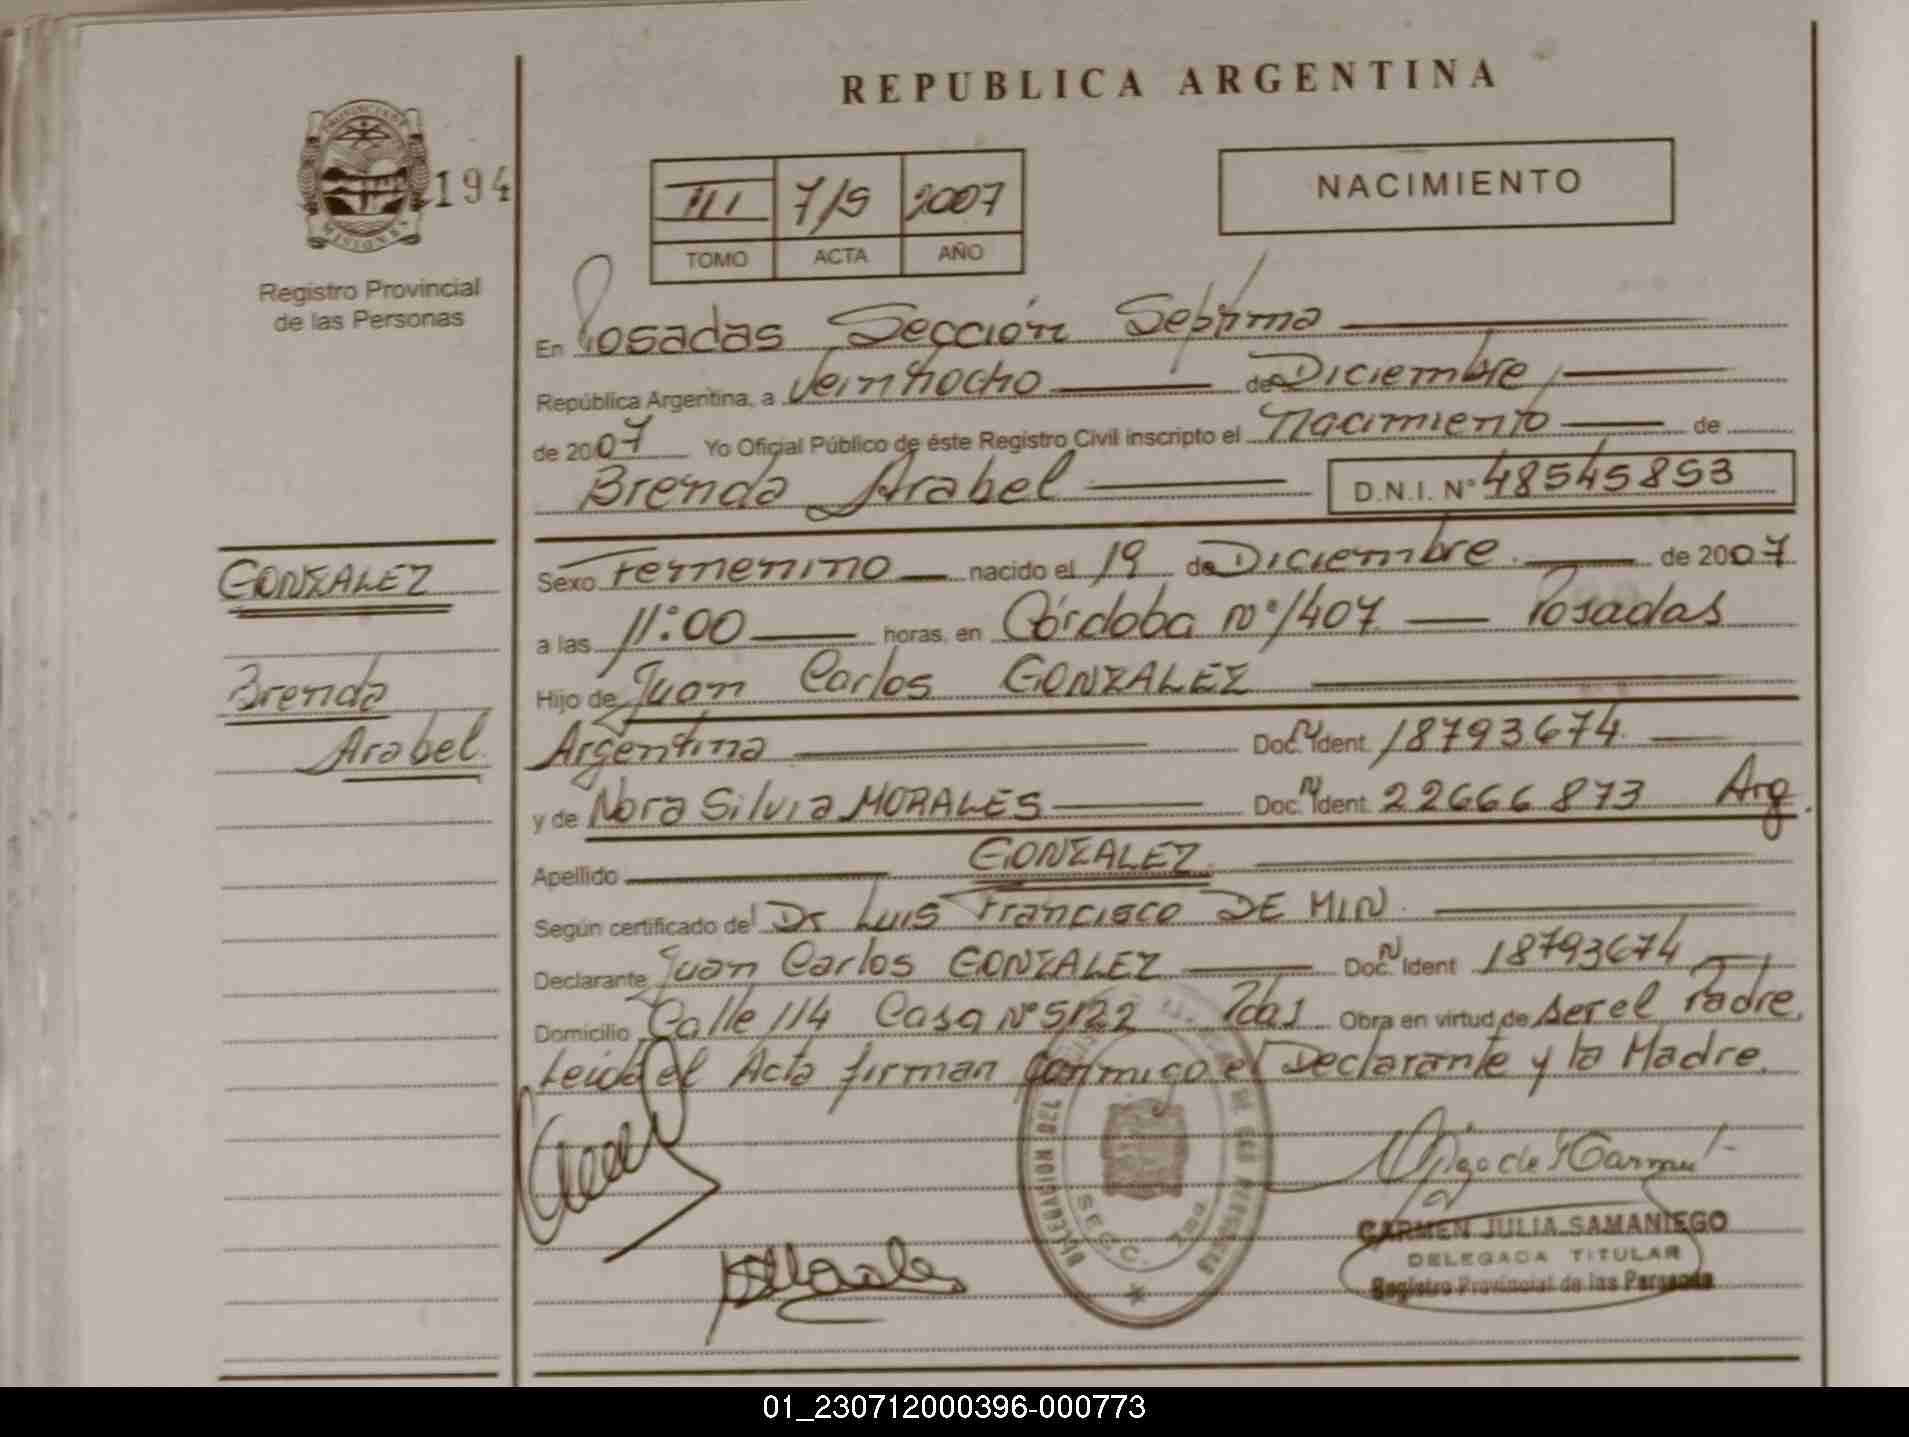 REPUBLICA ARGENTINA
PROVINCIA DE
MISIONES
194
Registro Provincial
de las Personas
III 7/5 2007
TOMO ACTA AÑO
NACIMIENTO
En Posadas Sección Septima
República Argentina, a Veintiocho de Diciembre
de 2007 Yo Oficial Público de éste Registro Civil inscripto el Nacimiento de
Brenda Arabel D.N.I. N° 48545853
GONZALEZ
Brenda
Arabel
Sexo Femenino nacido el 19 de Diciembre. de 2007
a las 11:00 horas, en Córdoba n° 1407 Posadas
Hijo de Juan Carlos GONZALEZ
Argentina Doc. N Ident. 18793674
y de Nora Silvia MORALES Doc. N Ident. 22666873 Arg.
Apellido GONZALEZ
Según certificado del Dr Luis Francisco DE MIN.
Declarante Juan Carlos GONZALEZ Doc. N Ident 18793674
Domicilio Calle 114 Casa N° 5122 Pdas Obra en virtud de ser el Padre.
Leida el Acta firman conmigo el Declarante y la Madre.
SECC. 7ma
CARMEN JULIA SAMANIEGO
DELEGADA TITULAR
Registro Provincial de las Personas
01_230712000396-000773